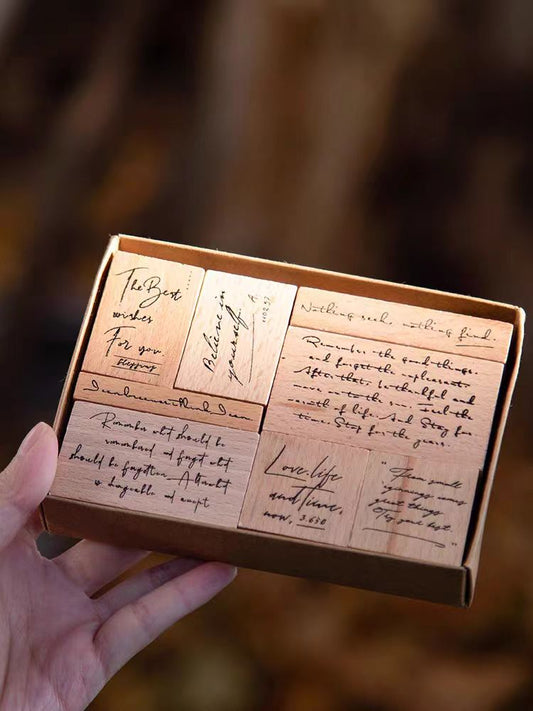 The Best
wishes
For you.
Believe in
yourself.
Nothing seek, nothing find.
Remember the good things,
and forget the
After that, be thankful and
move on to the Feel the
of life. And Stay for
time. Stay for the years.
Remember what should be
remembered and forget what
should be forgotten. Alter what
is and accept
Love life
and Time,
now, 3.650
"From small
great things
Try your best.